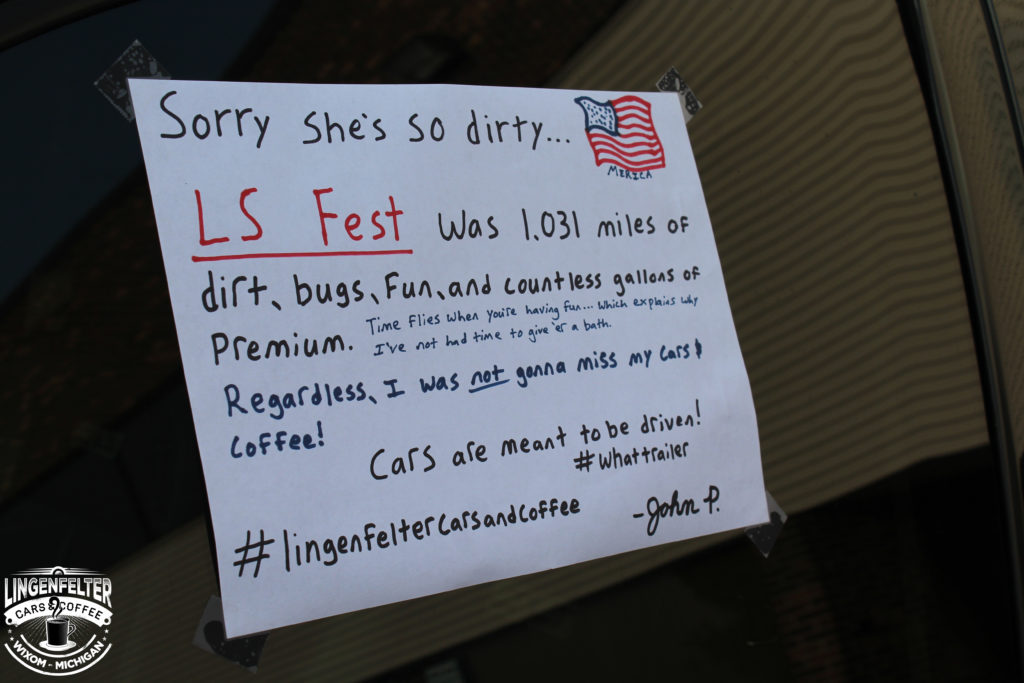 Sorry She's so dirty...
MERICA
LS Fest Was 1,031 miles of
dirt, bugs, Fun, and countless gallons of
Premium. Time Flies when you're having fun... which explains why
I've not had time to give 'er a bath.
Regardless, I was not gonna miss my Cars &
Coffee!
Cars are meant to be driven!
#Whattrailer
#lingenfeltercarsandcoffee
-John P.
LINGENFELTER
CARS & COFFEE
WIXOM - MICHIGAN